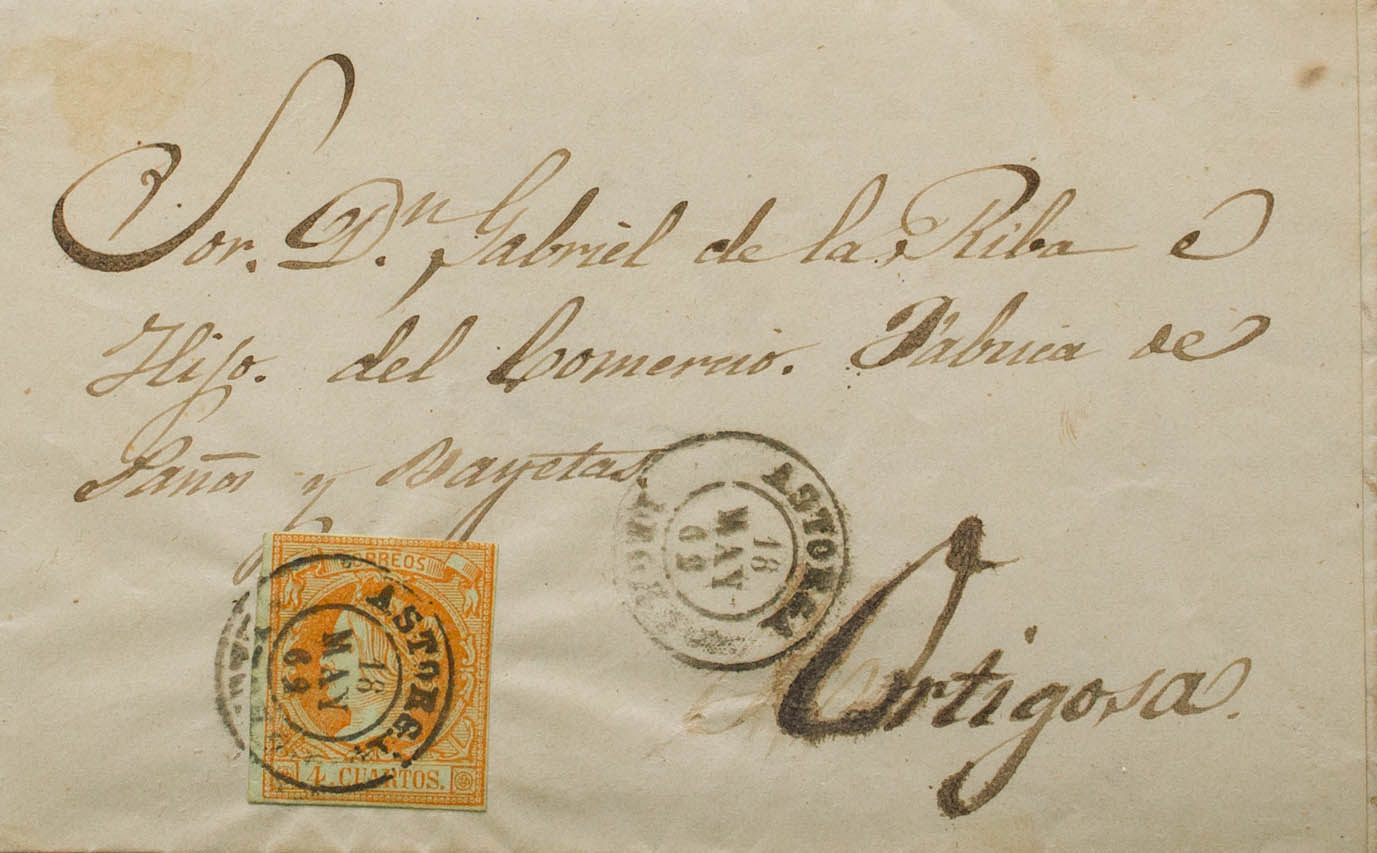 Sor. Dn. Gabriel de la Riba e
Hijo. del Comercio. Fabrica de
Paños y Bayetas.
Ortigosa.
ASTORGA
18
MAY
CORREOS
ASTORGA
18
MAY
4 CUARTOS.